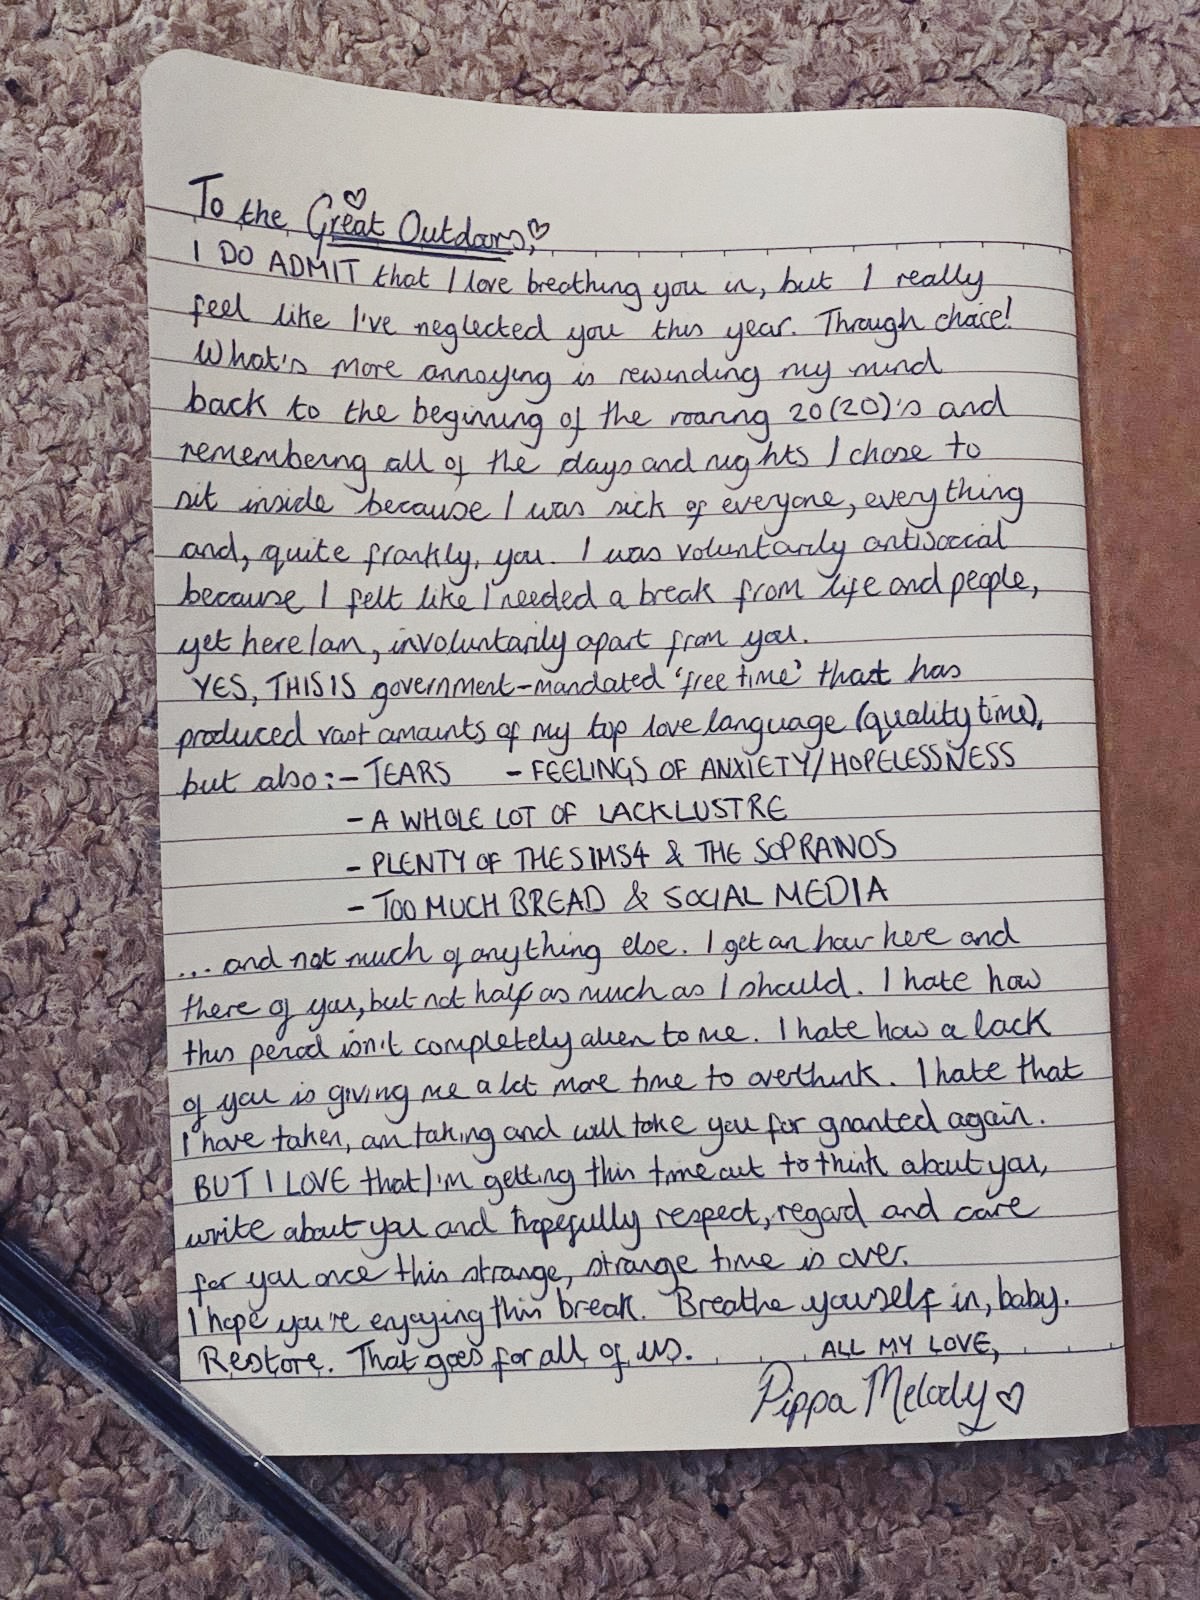 To the Great Outdoors,
I DO ADMIT that I love breathing you in, but I really
feel like I've neglected you this year. Through choice!
What's more annoying is rewinding my mind
back to the beginning of the roaring 20(20)'s and
remembering all of the days and nights I chose to
sit inside because I was sick of everyone, everything
and, quite frankly, you. I was voluntarily antisocial
because I felt like I needed a break from life and people,
yet here I am, involuntarily apart from you.
YES, THIS IS government-mandated 'free time' that has
produced vast amounts of my top love language (quality time),
but also:- TEARS - FEELINGS OF ANXIETY/HOPELESSNESS
- A WHOLE LOT OF LACKLUSTRE
- PLENTY OF THE SIMS 4 & THE SOPRANOS
- TOO MUCH BREAD & SOCIAL MEDIA
... and not much of anything else. I get an hour here and
there of you, but not half as much as I should. I hate how
this period isn't completely alien to me. I hate how a lack
of you is giving me a lot more time to overthink. I hate that
I have taken, am taking and will take you for granted again.
BUT I LOVE that I'm getting this time out to think about you,
write about you and hopefully respect, regard and care
for you once this strange, strange time is over.
I hope you're enjoying this break. Breathe yourself in, baby.
Restore. That goes for all of us. ALL MY LOVE,
Pippa Melody